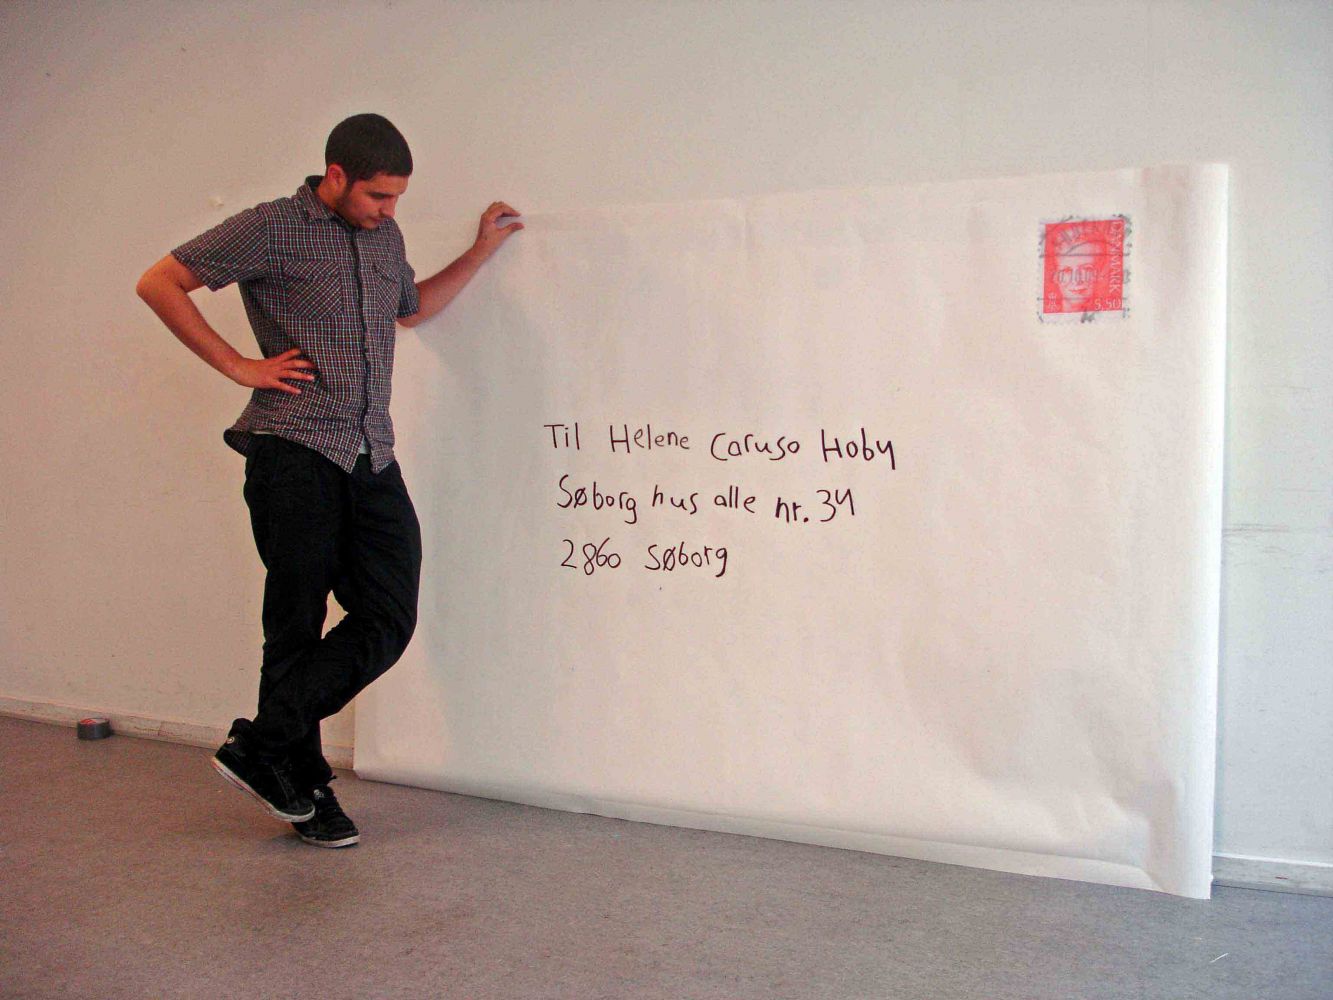 Til Helene Caruso Hoby
Søborg hus alle nr. 34
2860 Søborg
DANMARK
5.50